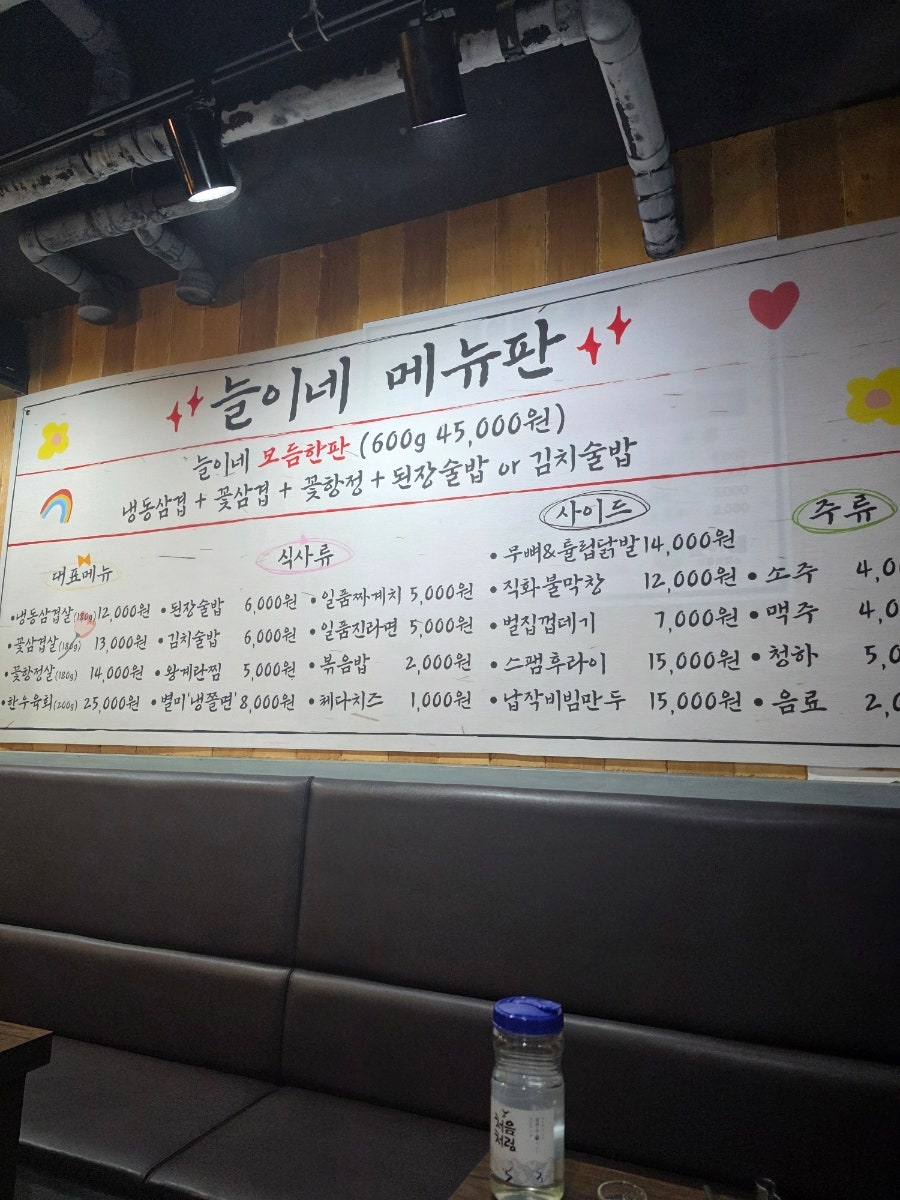 늘이네 메뉴판
늘이네 모듬한판 (600g 45,000원)
냉동삼겹 + 꽃삼겹 + 꽃항정 + 된장술밥 or 김치술밥
대표메뉴
•냉동삼겹살(180g) 12,000원
•꽃삼겹살(180g) 13,000원
•꽃항정살(180g) 14,000원
•한우육회(200g) 25,000원
식사류
•된장술밥 6,000원
•김치술밥 6,000원
•왕계란찜 5,000원
•별미'냉쫄면' 8,000원
•일품짜계치 5,000원
•일품진라면 5,000원
•볶음밥 2,000원
•체다치즈 1,000원
사이드
•무뼈&튤립닭발 14,000원
•직화불막창 12,000원
•벌집껍데기 7,000원
•스팸후라이 15,000원
•납작비빔만두 15,000원
주류
•소주 4,0
•맥주 4,0
•청하 5,0
•음료 2,0
처음
처럼